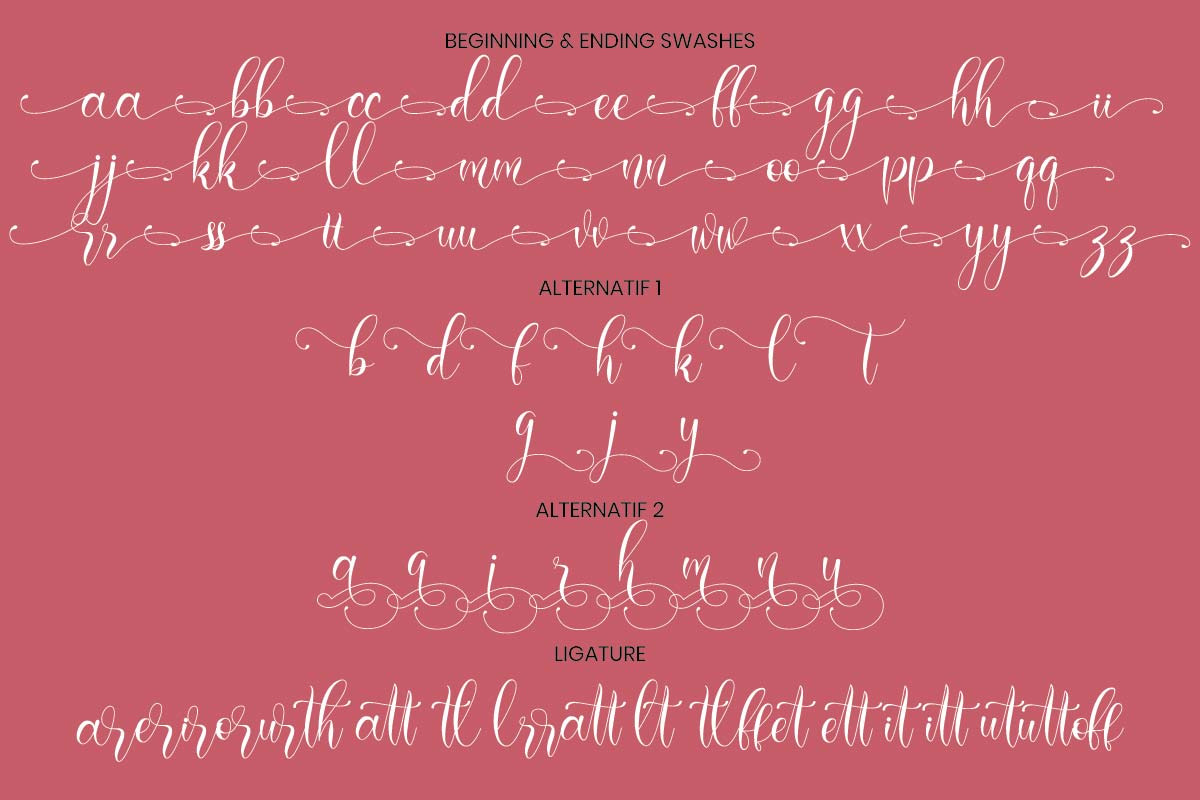 BEGINNING & ENDING SWASHES
aa bb cc dd ee ff gg hh ii
jj kk ll mm nn oo pp qq
rr ss tt uu vv ww xx yy zz
ALTERNATIF 1
b d f h k l t
g j y
ALTERNATIF 2
a q i r h m n u
LIGATURE
arerirorurth att tl lrratt lt tlffet ett it itt ututtoff